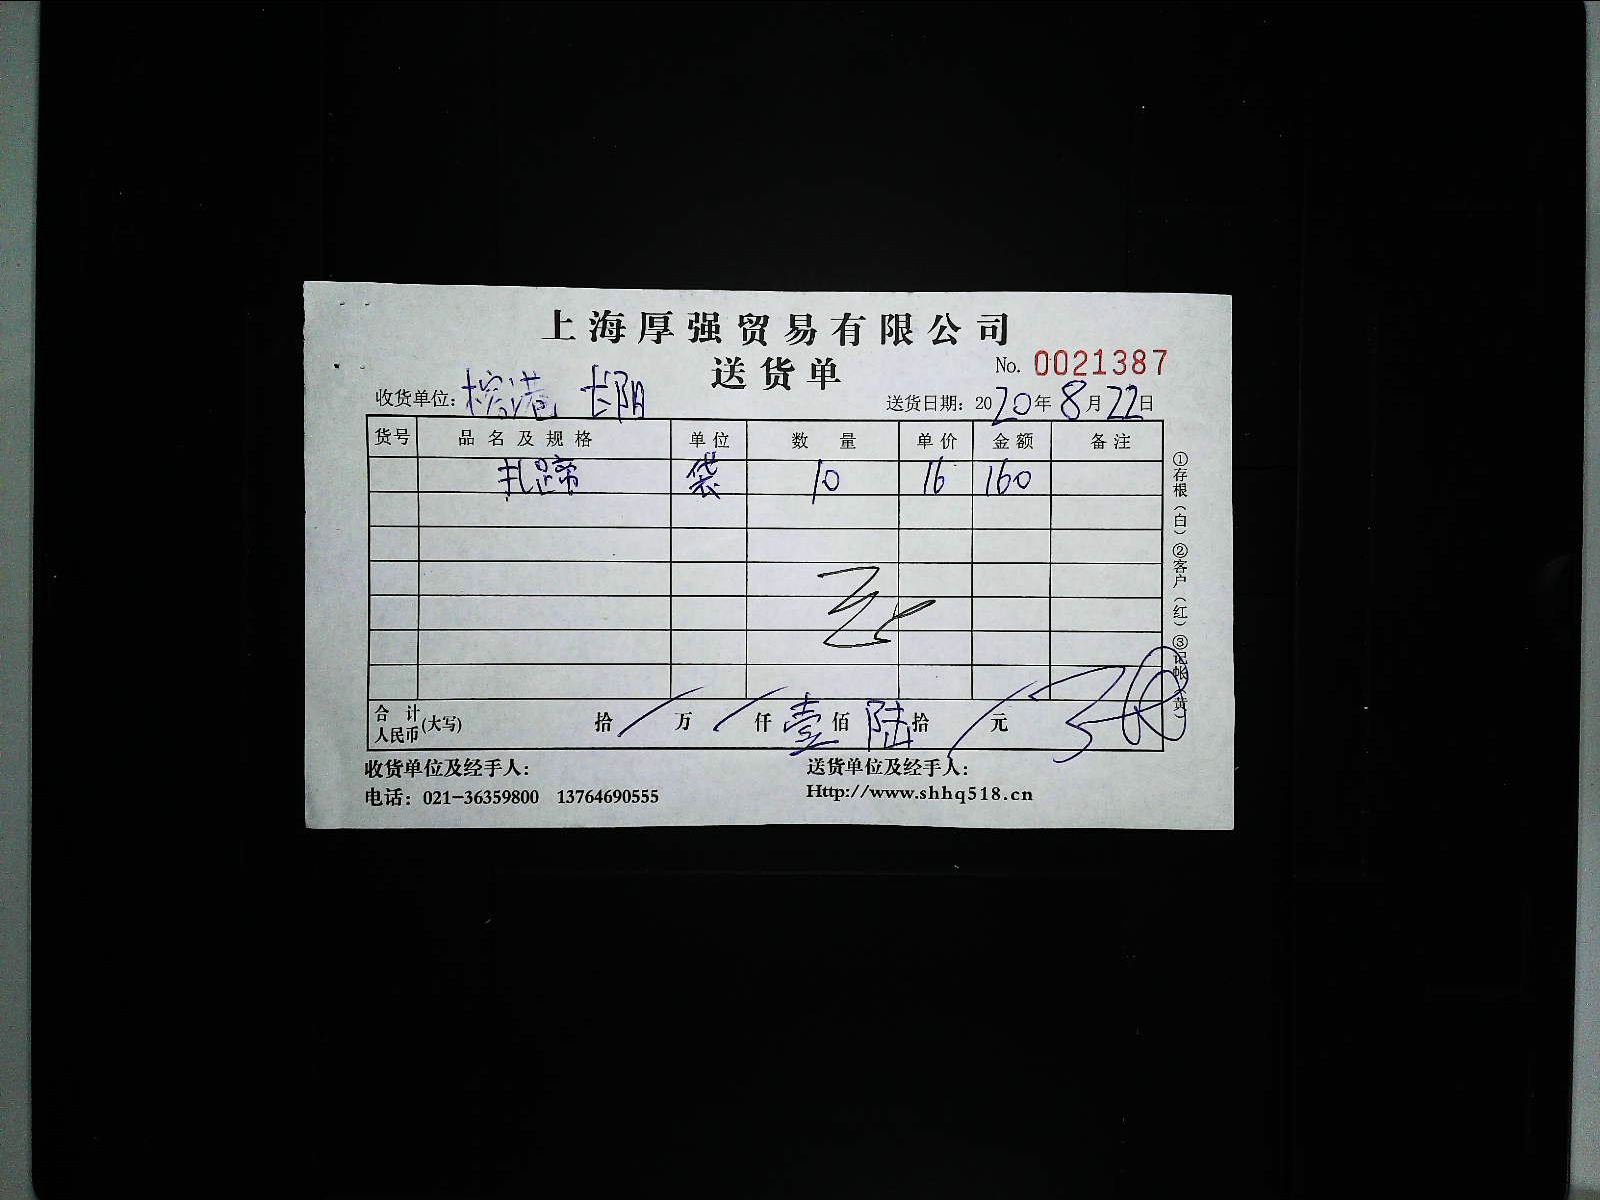 上海厚强贸易有限公司
送货单
No. 0021387
收货单位：榕港 长阳
送货日期：2020年8月22日
货号 品名及规格 单位 数量 单价 金额 备注
扎蹄 袋 10 16 160
合计人民币(大写) 拾/万/仟壹佰陆拾/元
收货单位及经手人：
送货单位及经手人：
电话：021-36359800 13764690555
Http://www.shhq518.cn
①存根（白）②客户（红）③记帐（黄）